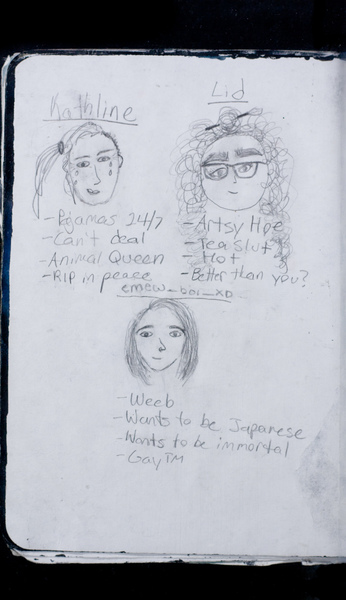 Kathline
- Pajamas 24/7
- Can't deal
- Animal Queen
- RIP in peace
Lid
- Artsy Hoe
- Tea Slut
- Hot
- Better than you?
emew_boi_XD
- Weeb
- Wants to be Japanese
- Wants to be immortal
- Gay™